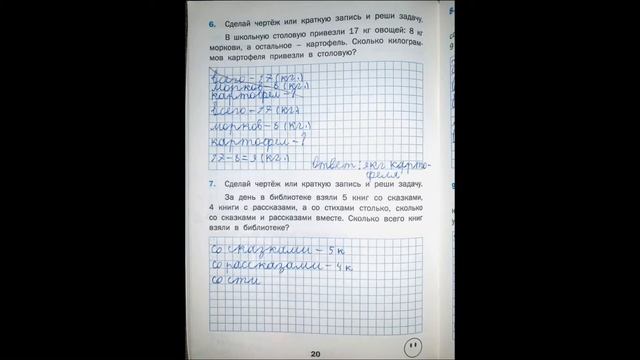 6. Сделай чертёж или краткую запись и реши задачу.
В школьную столовую привезли 17 кг овощей: 8 кг
моркови, а остальное – картофель. Сколько килограм-
мов картофеля привезли в столовую?
всего – 17 (кг.)
морков – 8 (кг.)
картофел – ?
всего – 17 (кг)
морков – 8 (кг.)
картофел – ?
17 – 8 = 9 (кг.)
ответ: 9 кг карто-
феля
7. Сделай чертёж или краткую запись и реши задачу.
За день в библиотеке взяли 5 книг со сказками,
4 книги с рассказами, а со стихами столько, сколько
со сказками и рассказами вместе. Сколько всего книг
взяли в библиотеке?
со сказками – 5 к
со рассказами – 4 к
со сти
20